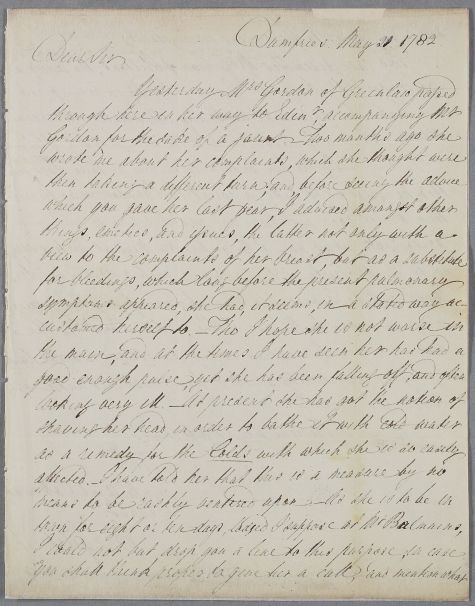 Dumfries May 21 1782
Dear Sir
Yesterday Mrs Gordon of Greenlaw passed
through here in her way to Edinr accompanying Mr
Gordon for the sake of a jaunt. Two months ago she
wrote me about her complaints, which she thought were
then taking a different turn, and before seeing the advice
which you gave her last year, I advised amongst other
things, emetics, and issues, the latter not only with a
view to the complaints of her Breast, but as a substitute
for bleedings, which long before the present pulmonary
symptoms appeared, she had, it seems, in a stated way ac-
customed herself to. Tho I hope she is not worse in
the main, and at the times I have seen her has had a
good enough pulse yet she has been falling off, and often
looking very ill. At present she has got the notion of
shaving her head, in order to bathe it with cold water
as a remedy for the Colds with which she is so easily
affected. I have told her that this is a measure by no
means to be rashly ventured upon. As she is to be in
town for eight or ten days, lodged I suppose at Mr Balmains,
I could not but drop you a line to this purpose, in case
you shall think proper to give her a call, and mention what